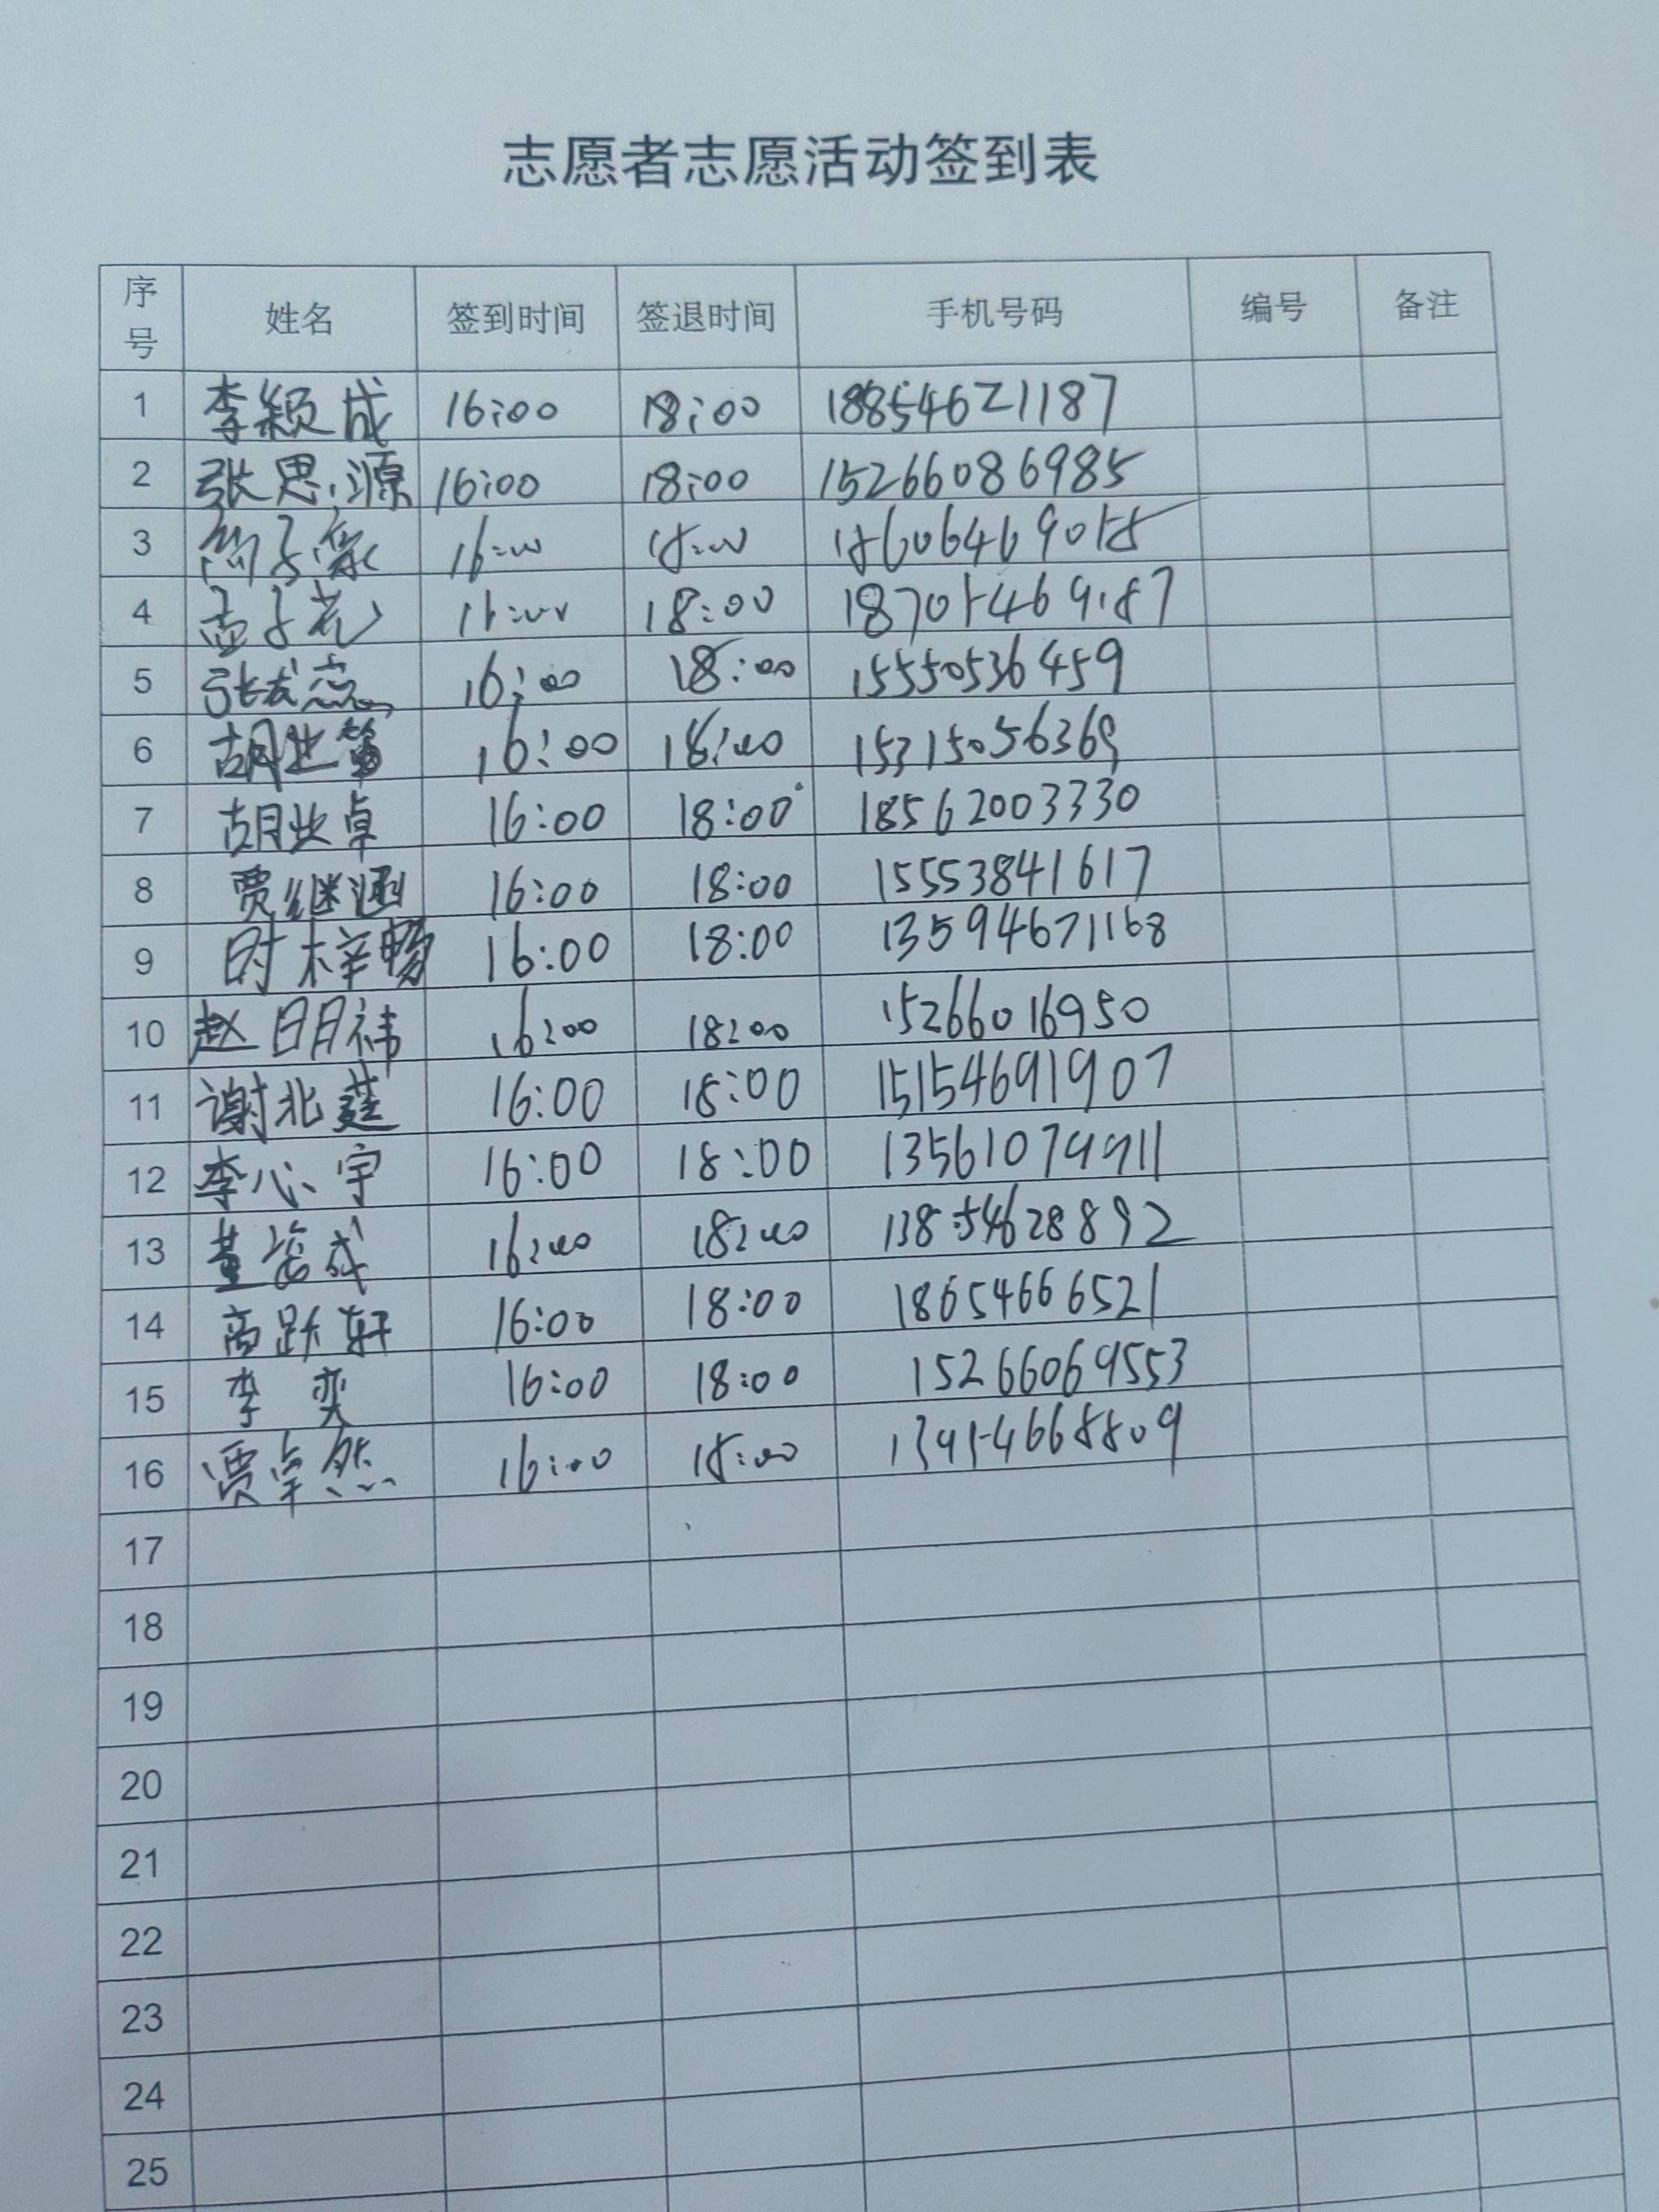 志愿者志愿活动签到表
序号 姓名 签到时间 签退时间 手机号码 编号 备注
1 李颖成 16:00 18:00 18854621187
2 张思源 16:00 18:00 15266086985
3 16:00 18:00
4 18:00
5 16:00 18:00 15550536459
6 16:00 18:00 15315056369
7 胡业卓 16:00 18:00 18562003330
8 贾继涵 16:00 18:00 15553841617
9 时梓畅 16:00 18:00 13594671168
10 赵明祎 16:00 18:00 15266016950
11 谢北莛 16:00 18:00 15154691907
12 李心宇 16:00 18:00 13561079911
13 16:00 18:00 13854628892
14 高跃轩 16:00 18:00 18654666521
15 李奕 16:00 18:00 15266069553
16 贾卓然 16:00 18:00
17
18
19
20
21
22
23
24
25